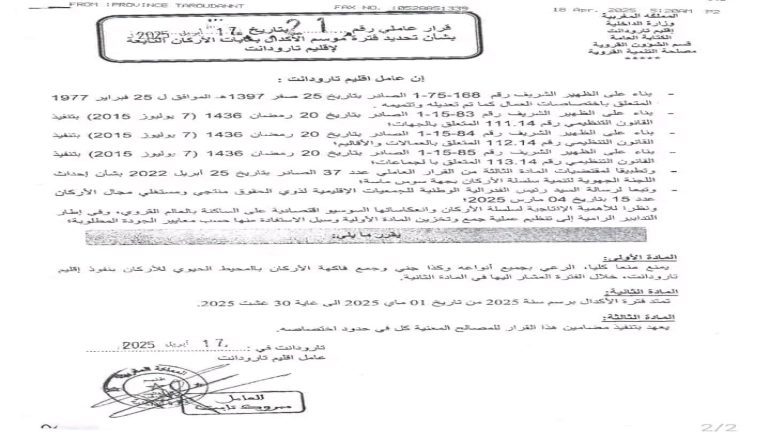 FROM :PROVINCE TAROUDANNT
FAX NO. :0528851339
18 Apr. 2025 5:20AM P2
المملكة المغربية
وزارة الداخلية
إقليم تارودانت
الكتابة العامة
قسم الشؤون القروية
مصلحة التنمية القروية
قرار عاملي رقم 21 بتاريخ 17 أبريل 2025
بشأن تحديد فترة موسم الأكدال بغابات الأركان التابعة
لإقليم تارودانت
إن عامل اقليم تارودانت :
- بناء على الظهير الشريف رقم 168-75-1 الصادر بتاريخ 25 صفر 1397هـ الموافق ل 25 فبراير 1977
المتعلق باختصاصات العمال كما تم تعديله وتتميمه.
- بناء على الظهير الشريف رقم 83-15-1 الصادر بتاريخ 20 رمضان 1436 (7 يوليوز 2015) بتنفيذ
القانون التنظيمي رقم 111.14 المتعلق بالجهات؛
- بناء على الظهير الشريف رقم 84-15-1 الصادر بتاريخ 20 رمضان 1436 (7 يوليوز 2015) بتنفيذ
القانون التنظيمي رقم 112.14 المتعلق بالعمالات والأقاليم؛
- بناء على الظهير الشريف رقم 85-15-1 الصادر بتاريخ 20 رمضان 1436 (7 يوليوز 2015) بتنفيذ
القانون التنظيمي رقم 113.14 المتعلق با لجماعات؛
- وتطبيقا لمقتضيات المادة الثالثة من القرار العاملي عدد 37 الصادر بتاريخ 25 أبريل 2022 بشأن إحداث
اللجنة الجهوية لتنمية سلسلة الأركان بجهة سوس ماسة؛
- وتبعا لرسالة السيد رئيس الفدرالية الوطنية للجمعيات الإقليمية لذوي الحقوق منتجي ومستغلي مجال الأركان
عدد 15 بتاريخ 04 مارس 2025؛
- ونظرا للأهمية الإنتاجية لسلسلة الأركان وانعكاساتها السوسيو اقتصادية على الساكنة بالعالم القروي، وفي إطار
التدابير الرامية إلى تنظيم عملية جمع وتخزين المادة الأولية وسبل الاستفادة منها حسب معايير الجودة المطلوبة؛
يقرر ما يلي:
المادة الأولى:
يمنع منعا كليا، الرعي بجميع أنواعه وكذا جني وجمع فاكهة الأركان بالمحيط الحيوي للأركان بنفوذ إقليم
تارودانت، خلال الفترة المشار اليها في المادة الثانية.
المادة الثانية:
تمتد فترة الأكدال برسم سنة 2025 من تاريخ 01 ماي 2025 الى غاية 30 غشت 2025.
المادة الثالثة:
يعهد بتنفيذ مضامين هذا القرار للمصالح المعنية كل في حدود اختصاصه.
تارودانت في : 17 أبريل 2025
عامل اقليم تارودانت
المملكة المغربية
العامل
مبروك ثابت
2/2